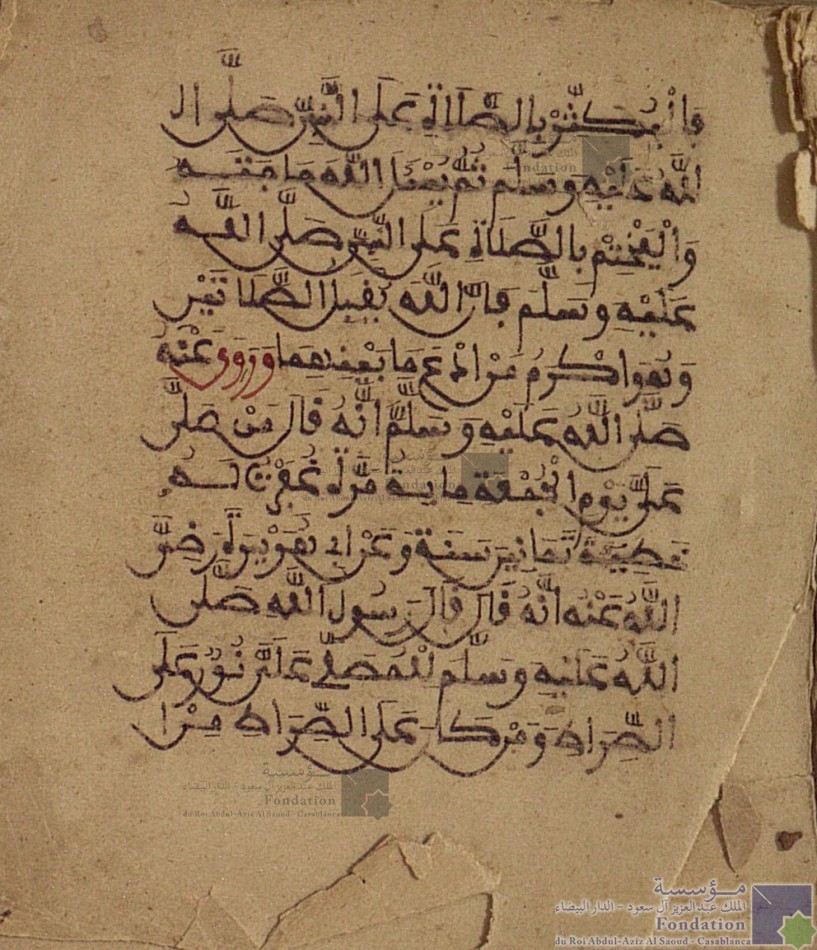 فَالْيُكَثِّرْ بِالصَّلَاةِ عَلَى النَّبِيِّ صَلَّى ا
للَّهُ عَلَيْهِ وَسَلَّم ثُمَّ يَسْئَلِ اللَّهَ حَاجَتَهُ
وَالْيَخْتِمْ بِالصَّلَاةِ عَلَى النَّبِيِّ صَلَّى اللَّهُ
عَلَيْهِ وَسَلَّم فَإِنَّ اللَّهَ يَقْبَلُ الصَّلَاتَيْنِ
وَهُوَ اكْرَمُ مَنْ ان يَّدَعَ مَا بَيْنَهُمَا وَرُوِىَ عَنْهُ
صَلَّى اللَّهُ عَلَيْهِ وَسَلَّمَ انَّهُ قَالَ مَنْ صَلَّى
عَلَىَّ يَوْمَ الْجُمُعَةِ مِايَةَ مَرَّةٍ غُفِرَتْ لَهُ
خَطِيئَةُ ثَمَانِينَ سَنَةً وَعَنْ ابِى هُرَيْرَةَ رَضِىَ
اللَّهُ عَنْهُ انَّهُ قَالَ قَالَ رَسُولُ اللَّهِ صَلَّى
اللَّهُ عَلَيْهِ وَسَلَّمَ لِلْمُصَلِّى عَلَىَّ نُورٌ عَلَى
الصِّرَاطِ وَمَنْ كَانَ عَلَى الصِّرَاطِ مِنَ ا
مؤسسة
الملك عبد العزيز آل سعود - الدار البيضاء
Fondation
du Roi Abdul-Aziz Al Saoud - Casablanca